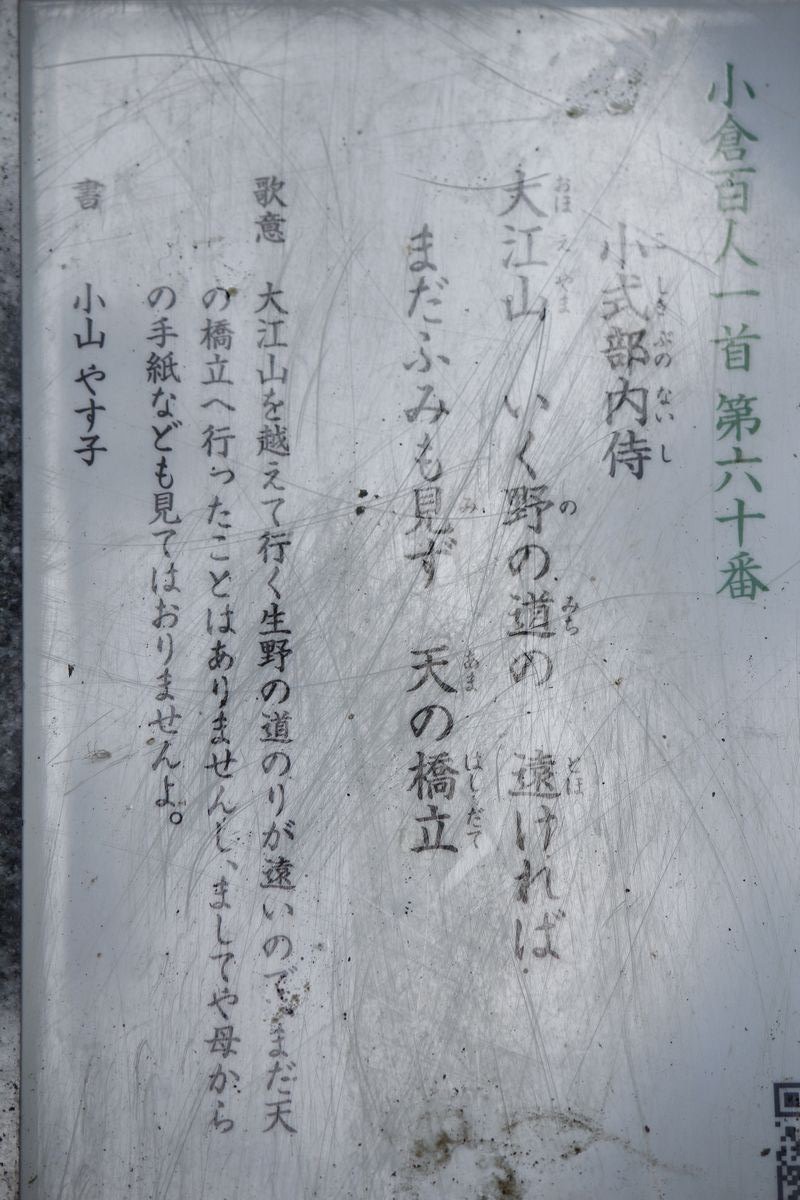 小倉百人一首 第六十番
小式部内侍
こしきぶのないし
大江山 いく野の道の 遠ければ
おほえやま の みち とほ
まだふみも見ず 天の橋立
み あま はしだて
歌意 大江山を越えて行く生野の道のりが遠いので、まだ天
の橋立へ行ったことはありませんし、ましてや母から
の手紙なども見てはおりませんよ。
書 小山 やす子